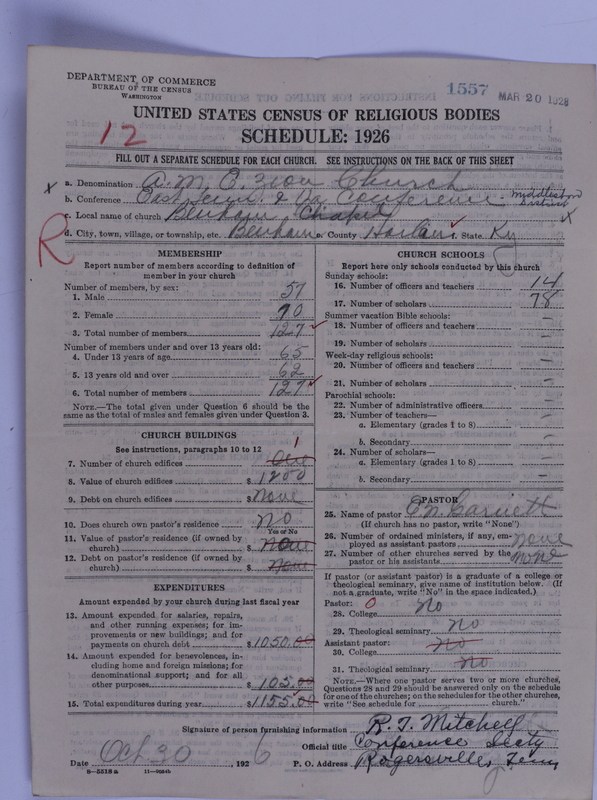 DEPARTMENT OF COMMERCE
BUREAU OF THE CENSUS
WASHINGTON
1557 MAR 20 1928
UNITED STATES CENSUS OF RELIGIOUS BODIES
12
SCHEDULE: 1926
FILL OUT A SEPARATE SCHEDULE FOR EACH CHURCH. SEE INSTRUCTIONS ON THE BACK OF THIS SHEET
x a. Denomination A. M. E. Zion Church
b. Conference East Tenn. & Va Conference - Middlesboro District
c. Local name of church Benham Chapel x
R d. City, town, village, or township, etc. Benham e. County Harlan f. State Ky
MEMBERSHIP
Report number of members according to definition of
member in your church
Number of members, by sex:
1. Male 57
2. Female 70
3. Total number of members 127
Number of members under and over 13 years old:
4. Under 13 years of age 65
5. 13 years old and over 62
6. Total number of members 127
NOTE.—The total given under Question 6 should be the
same as the total of males and females given under Question 3.
CHURCH BUILDINGS
See instructions, paragraphs 10 to 12
1
7. Number of church edifices One
8. Value of church edifices $ 1200
9. Debt on church edifices $ None
10. Does church own pastor's residence? No
Yes or No
11. Value of pastor's residence (if owned by
church) $ None
12. Debt on pastor's residence (if owned by
church) $ None
EXPENDITURES
Amount expended by your church during last fiscal year
13. For salaries, repairs,
and other running expenses; for im-
provements or new buildings; and for
payments on church debt $ 1050.00
14. Amount expended for benevolences, in-
cluding home and foreign missions; for
denominational support; and for all
other purposes $ 105.00
15. Total expenditures during year $ 1155.00
CHURCH SCHOOLS
Report here only schools conducted by this church
Sunday schools:
16. Number of officers and teachers 14
17. Number of scholars 78
Summer vacation Bible schools:
18. Number of officers and teachers —
19. Number of scholars —
Week-day religious schools:
20. Number of officers and teachers —
21. Number of scholars —
Parochial schools:
22. Number of administrative officers —
23. Number of teachers—
a. Elementary (grades 1 to 8) —
b. Secondary —
24. Number of scholars—
a. Elementary (grades 1 to 8) —
b. Secondary —
PASTOR
25. Name of pastor
(If church has no pastor, write "None")
26. Number of ordained ministers, if any, em-
ployed as assistant pastors None
27. Number of other churches served by the
pastor or his assistants None
If pastor (or assistant pastor) is a graduate of a college or
theological seminary, give name of institution below. (If
not a graduate, write "No" in the space indicated.)
Pastor: 0
28. College No
29. Theological seminary No
Assistant pastor:
30. College No
31. Theological seminary No
NOTE.—Where one pastor serves two or more churches,
Questions 28 and 29 should be answered only on the schedule
for one of the churches; on the schedules for the other churches,
write "See schedule for church."
Signature of person furnishing information R. T. Mitchell
Official title Conference Secty
Date Oct 30, 1926 P. O. Address Rogersville, Tenn
8—5518a